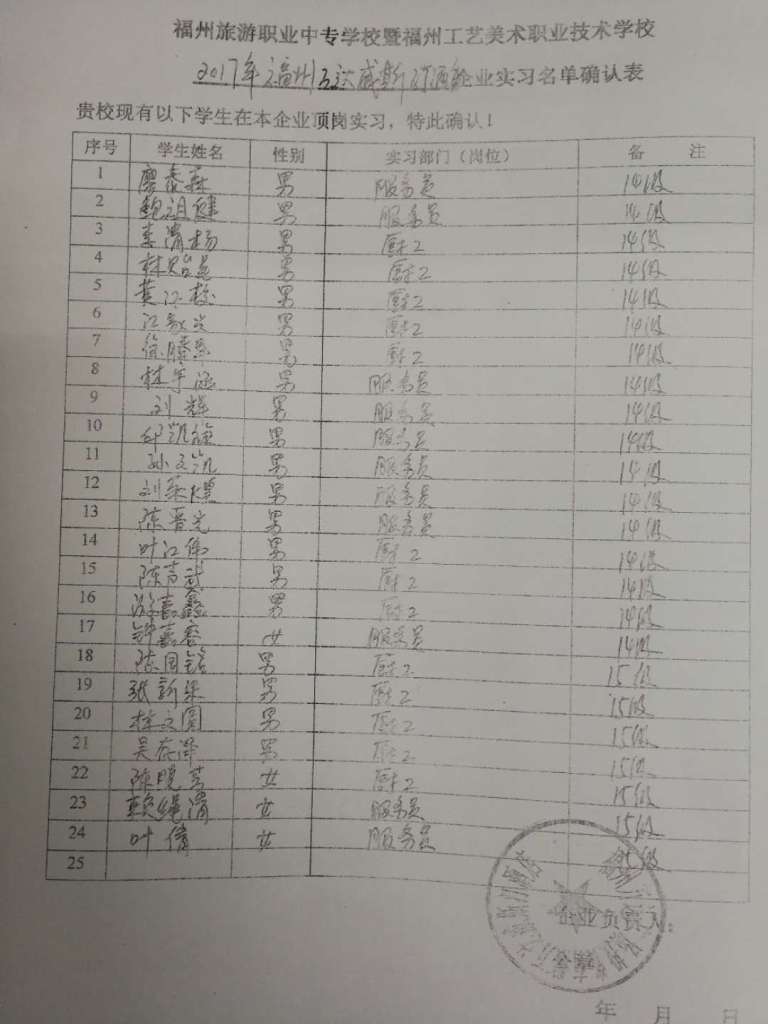 福州旅游职业中专学校暨福州工艺美术职业技术学校
2017年福州万达威斯汀酒店企业实习名单确认表
贵校现有以下学生在本企业顶岗实习，特此确认！
序号 学生姓名 性别 实习部门（岗位） 备 注
1 廖泰森 男 服务员 14级
2 鲍祖健 男 服务员 14级
3 李清杨 男 厨工 14级
4 林贻 男 厨工 14级
5 黄江 男 厨工 14级
6 江 男 厨工 14级
7 徐滕 男 厨工 14级
8 林宇涵 男 服务员 14级
9 刘辉 男 服务员 14级
10 邱凯 男 服务员 14级
11 孙文凯 男 服务员 14级
12 刘 男 服务员 14级
13 陈晋光 男 服务员 14级
14 叶江伟 男 厨工 14级
15 陈 武 男 厨工 14级
16 游嘉鑫 男 厨工 14级
17 钟嘉 女 服务员 14级
18 陈国 男 厨工 15级
19 张新 男 厨工 15级
20 林文圆 男 厨工 15级
21 吴存泽 男 厨工 15级
22 陈晓 女 厨工 15级
23 赖 清 女 服务员 15级
24 叶倩 女 服务员 15级
25
企业负责人：
年 月 日